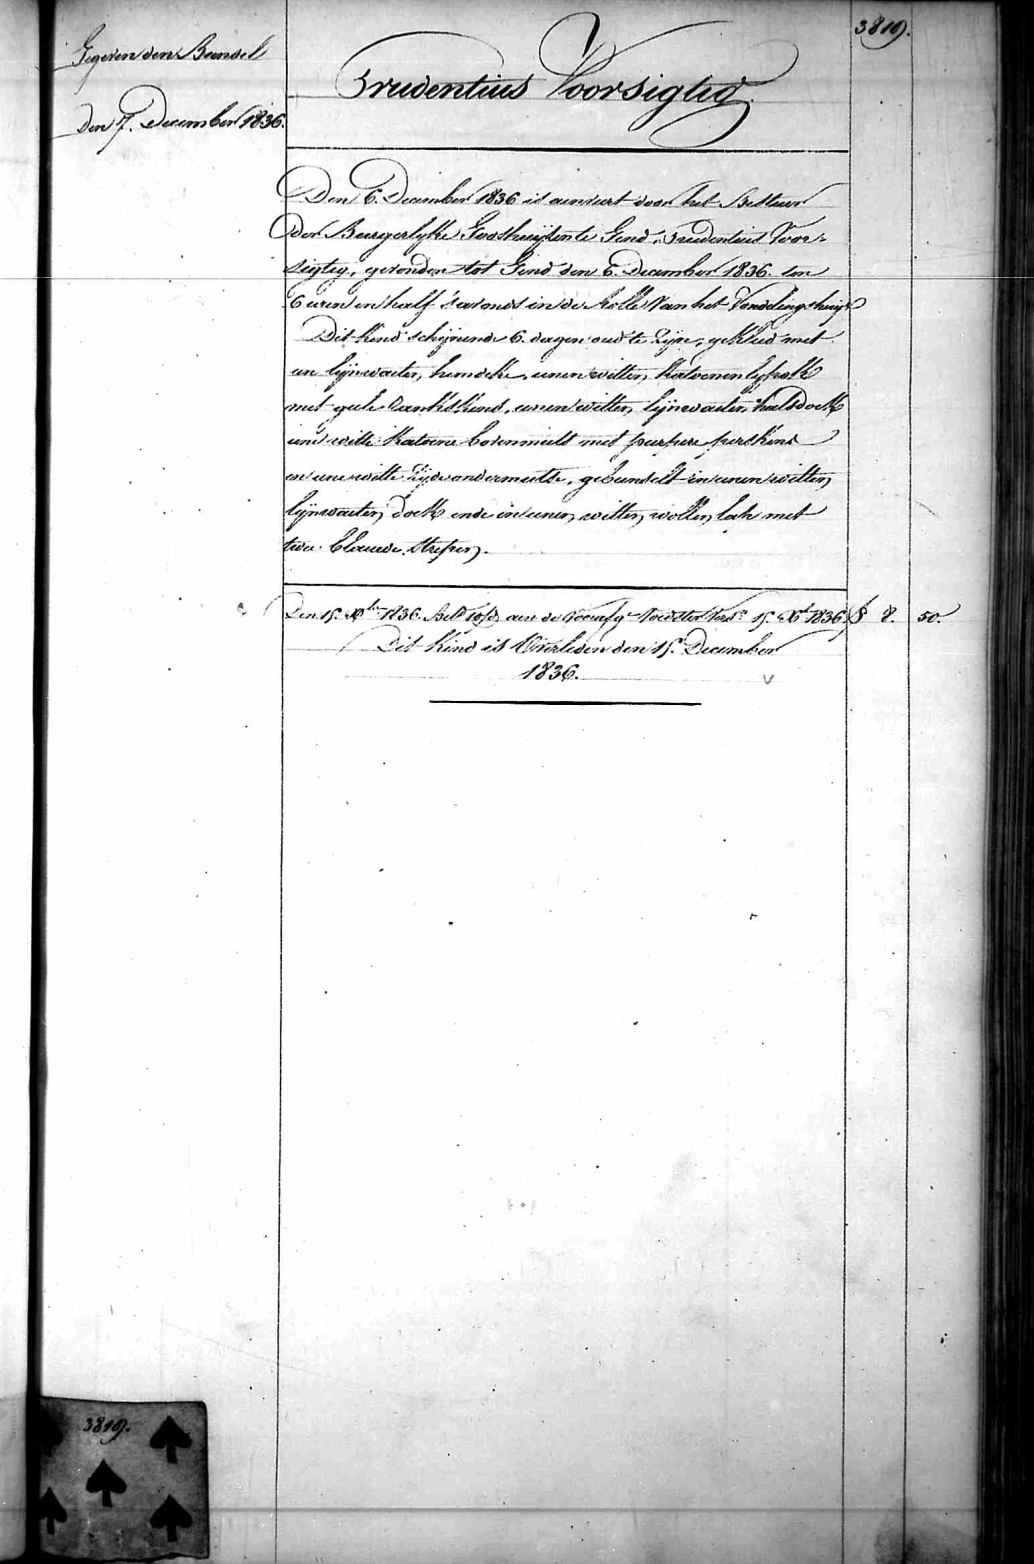 3819.
Gegeven den Bundel
den 7. December 1836.
Prudentius Voorsigtig.
Den 6. December 1836 is aenveert door het Bestuer
der Burgerlyke Godshuijsen te Gend, Prudentius Voor-
sigtig, gevonden tot Gend den 6. December 1836. ten
6 uren en half s'avonds in de Rolle van het Vondelinghuijs
Dit kind schijnende 6. dagen oud te zijn, gekleed met
een lijnwaeten hemdeke, eenen witten katoenen lyfrok
met geele rankskens, eenen witten lijnwaeten halsdoek
eene witte katoene bovenmuts met purpure perskens
en eene witte zijde ondermutse, gebundelt in eenen witten
lijnwaeten doek ende in eenen witten wollen lak met
twee blauwe strepen.
Den 15. Xber 1836. aen de Voedster 15. Xbr 1836 8. 50.
Dit kind is Overleden den 15. December
1836.
3819.